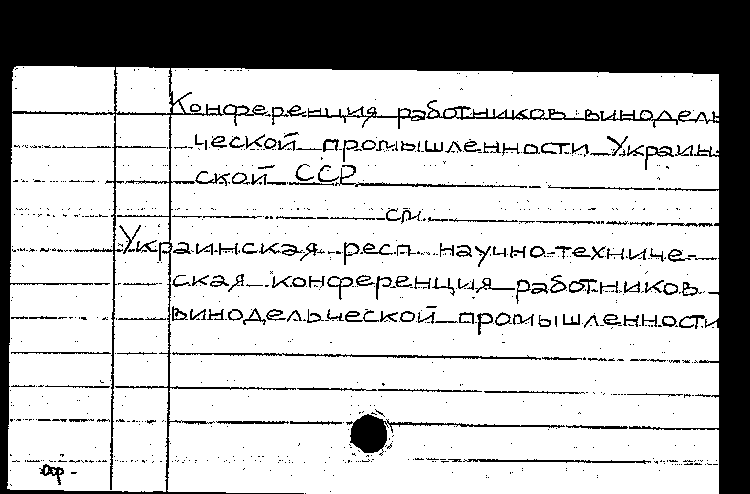 Конференция работников винодель
ческой промышленности Украин-
ской ССР
см.
Украинская респ. научно-техниче-
ская конференция работников
винодельческой промышленности